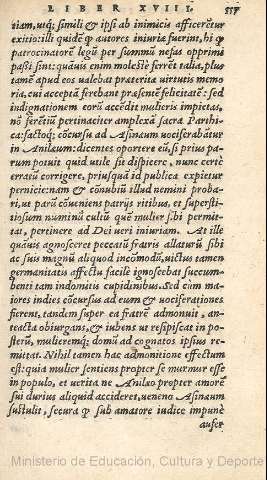 LIBER XVIII. 557
tiam, utq; simili & ipsi ab inimicis afficerẽtur
exitio: illi quidẽ ꝙ autores iniuriæ fuerint, hi ꝙ
patrocinatorẽ legũ per summũ nefas opprimi
passi sint: quãuis enim molestè ferrẽt talia, plus
tamẽ apud eos ualebat præterita uirtutis memo
ria, cui acceptã ferebant præsentẽ felicitatẽ: sed
indignationem eorũ accẽdit mulieris impietas,
nõ ferẽtiũ pertinaciter amplexã sacra Parthi-
ca: factoq; cõcursu ad Asinæum uociferabãtur
in Anilæum: dicentes oportere eũ, si prius pa-
rum potuit quid utile sit dispicere, nunc certè
erratũ corrigere, priusquã id publica expietur
pernicie: nam & cõnubiũ illud nemini proba-
ri, ut parũ cõueniens patrijs ritibus, et superst
tiosum numinũ cultũ quẽ mulier sibi permit-
tat, pertinere ad Dei ueri iniuriam. At ille
quãuis agnosceret peccatũ fratris allaturũ sibi
ac suis magnũ aliquod incõmodũ, uictus tamen
germanitatis affectu facilè ignoscebat succum-
benti tam indomitis cupidinibus. Sed cùm ma
iores indies cõcursus ad eum & uociferationes
fierent, tandem super ea fratrẽ admonuit, an-
teacta obiurgans, & iubens ut resipiscat in po-
sterũ, mulieremq; domũ ad cognatos ipsius re-
mittat. Nihil tamen hac admonitione effectum
est: quia mulier sentiens propter se murmur esse
in populo, et uerita ne Anilæo propter amorẽ
sui durius aliquid accideret, ueneno Asinæum
sustulit, secura ꝙ sub amatore iudice impunè
aufer
Ministerio de Educación, Cultura y Deporte